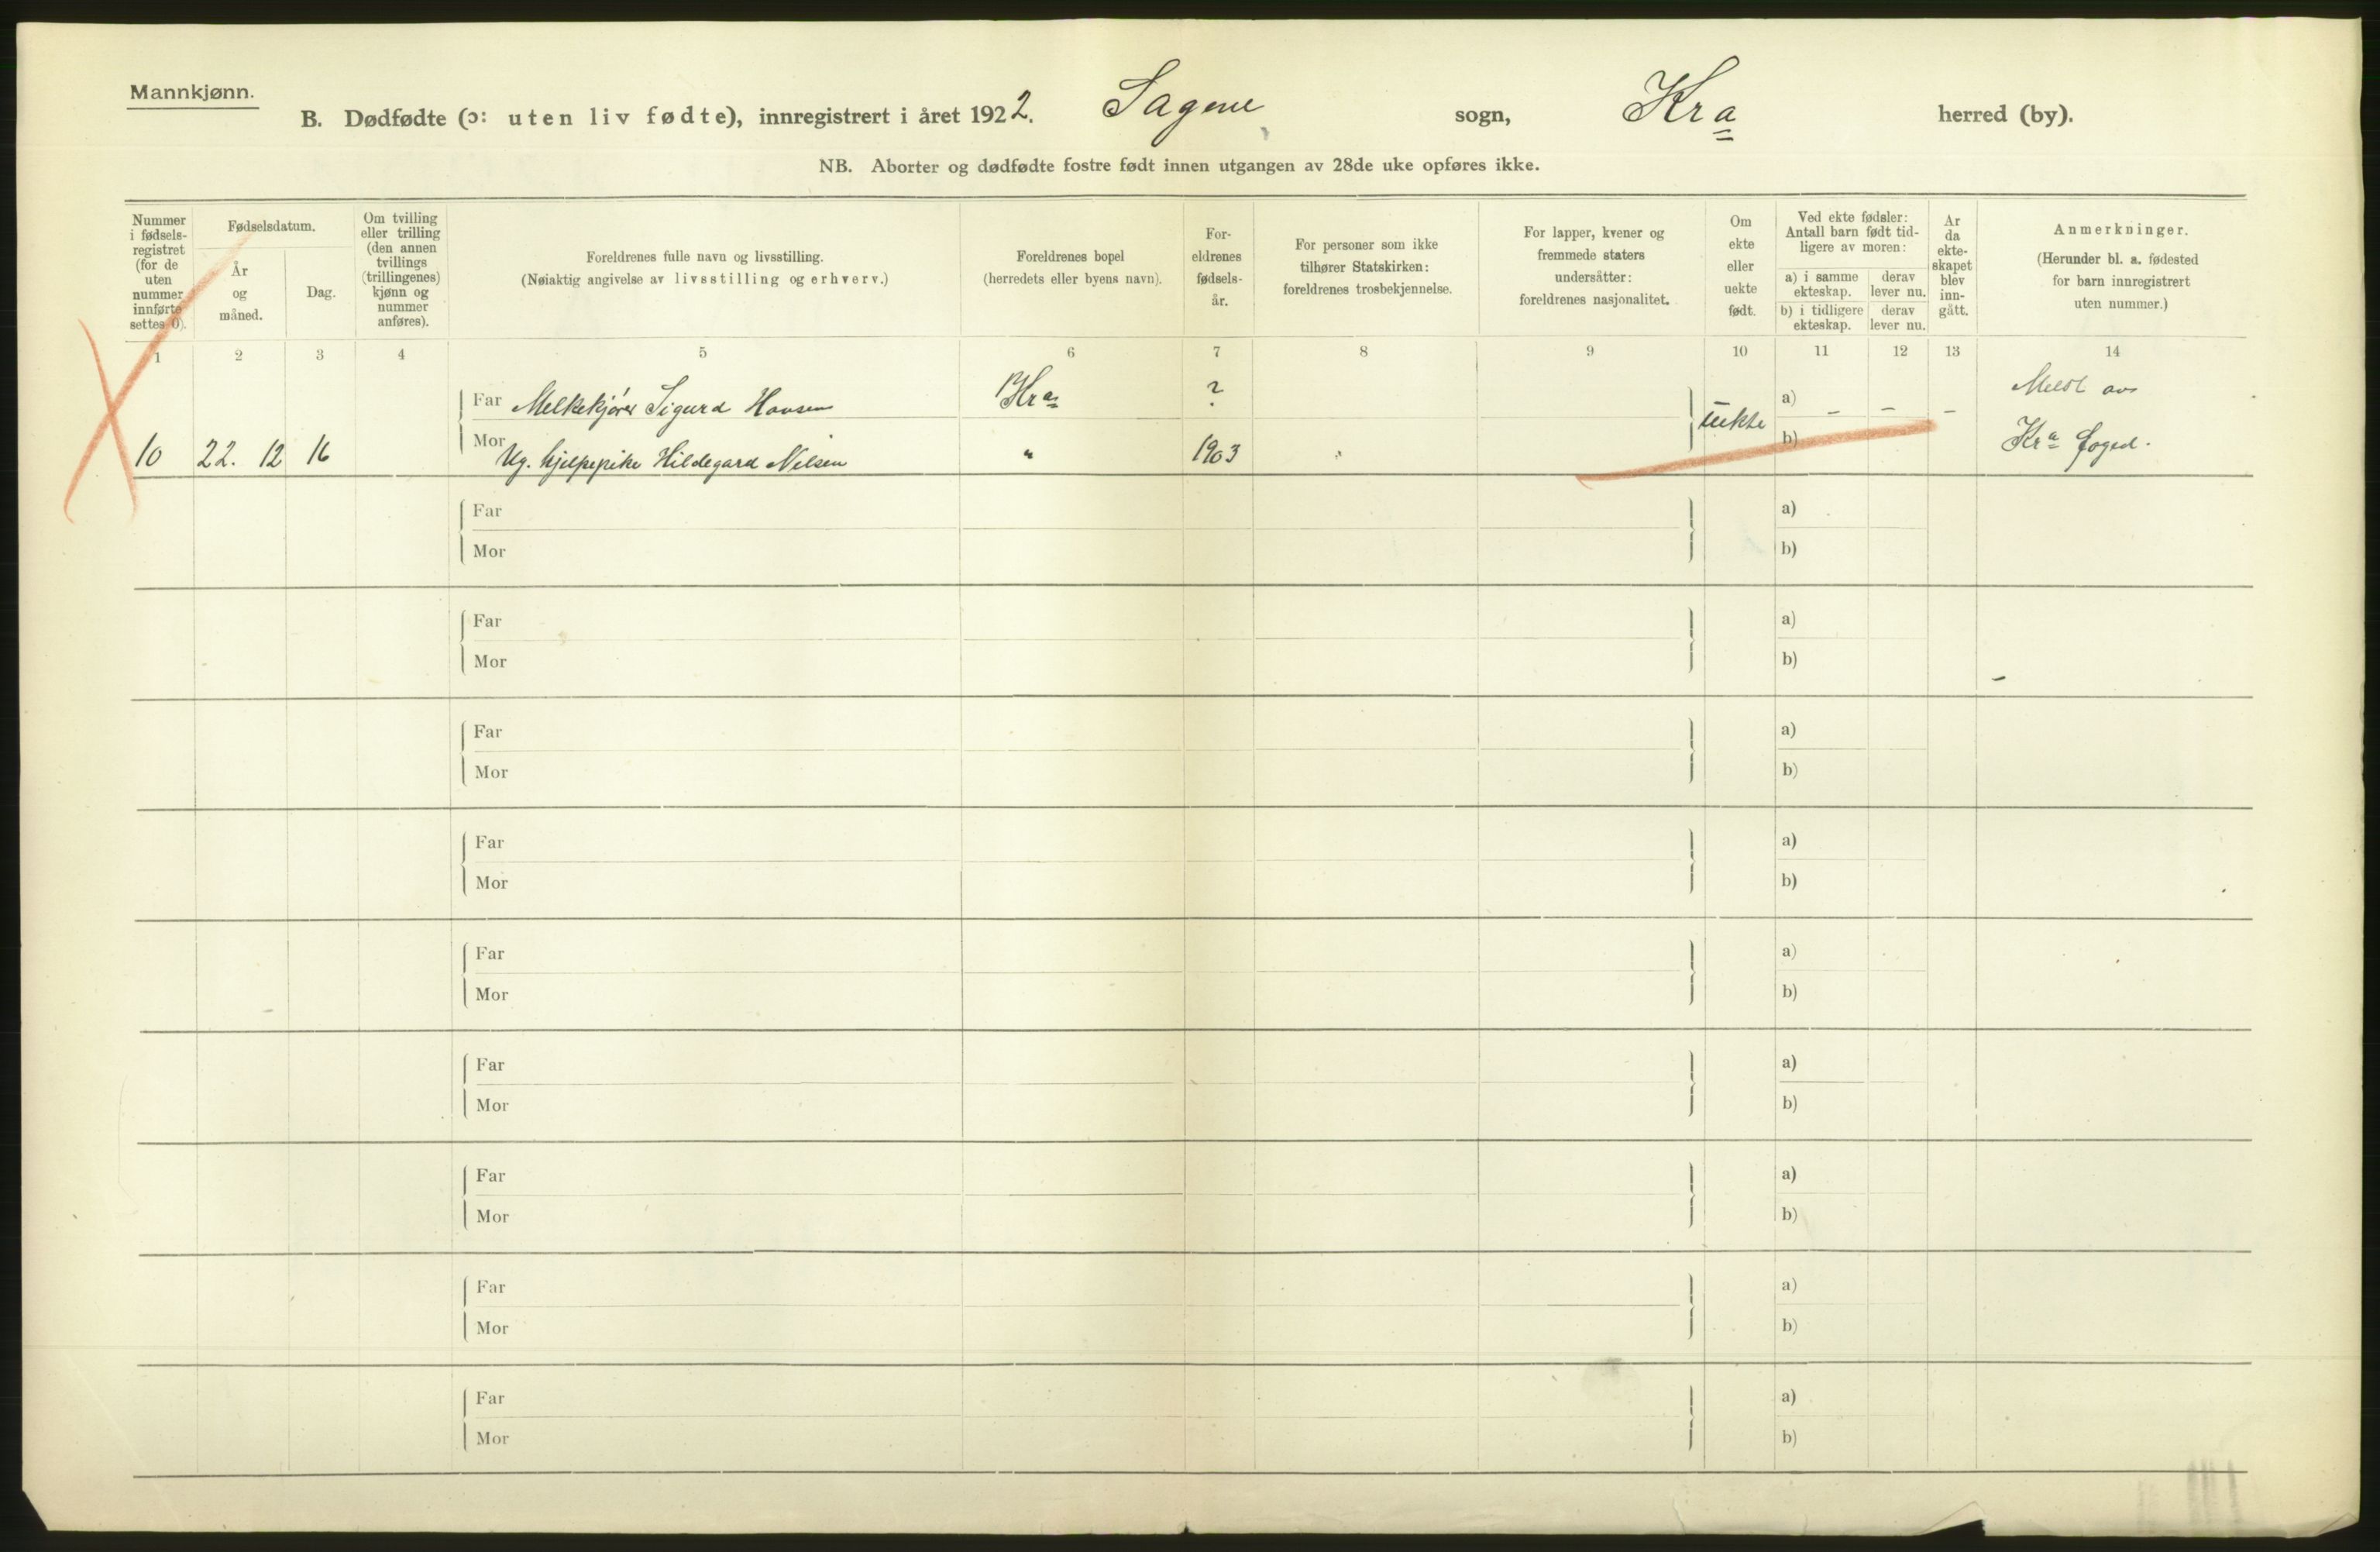 Mannkjønn.
B. Dødfødte (ɔ: uten liv fødte), innregistrert i året 1922. Sagene sogn, Kra herred (by).
NB. Aborter og dødfødte fostre født innen utgangen av 28de uke opføres ikke.
Nummer i fødsels-registret (for de uten nummer innførte settes 0).
Fødselsdatum.
År og måned.
Dag.
Om tvilling eller trilling (den annen tvillings (trillingenes) kjønn og nummer anføres).
Foreldrenes fulle navn og livsstilling.
(Nøiaktig angivelse av livsstilling og erhverv.)
Foreldrenes bopel
(herredets eller byens navn).
For-eldrenes fødsels-år.
For personer som ikke tilhører Statskirken: foreldrenes trosbekjennelse.
For lapper, kvener og fremmede staters undersåtter: foreldrenes nasjonalitet.
Om ekte eller uekte født.
Ved ekte fødsler: Antall barn født tid-ligere av moren:
a) i samme ekteskap.
derav lever nu.
b) i tidligere ekteskap.
derav lever nu.
År da ekte-skapet blev inn-gått.
Anmerkninger.
(Herunder bl. a. fødested for barn innregistrert uten nummer.)
1 2 3 4 5 6 7 8 9 10 11 12 13 14
Far Melkekjører Sigurd Hansen Kra ? uekte a) – – – Meldt av
10 22. 12 16 Mor Ug. hjelpepike Hildegard Nilsen " 1903 " b) Kra foged.
Far a)
Mor b)
Far a)
Mor b)
Far a)
Mor b)
Far a)
Mor b)
Far a)
Mor b)
Far a)
Mor b)
Far a)
Mor b)
Far a)
Mor b)
Far a)
Mor b)